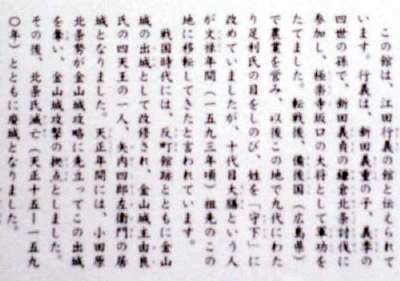 この館は、江田行義の館と伝えられて
います。行義は、新田義重の子、義季の
四世の孫で、新田義貞の鎌倉北条討伐に
参加し、極楽寺坂口の大将として軍功を
たてました。転戦後、備後国(広島県)
で農業を営み、以後この地で九代にわた
り足利氏の目をしのび、姓を「守下」に
改めていましたが、十代目大膳という人
が文禄年間(一五九三年頃)祖先のこの
地に移転してきたと言われています。
戦国時代には、反町館跡とともに金山
城の出城として改修され、金山城主由良
氏の四天王の一人、矢内四郎左衛門の居
城となりました。天正年間には、小田原
北条勢が金山城攻略に先立ってこの出城
を奪い、金山城攻撃の拠点としました。
その後、北条氏滅亡(天正十五―一五九
〇年)とともに廃城となりました。